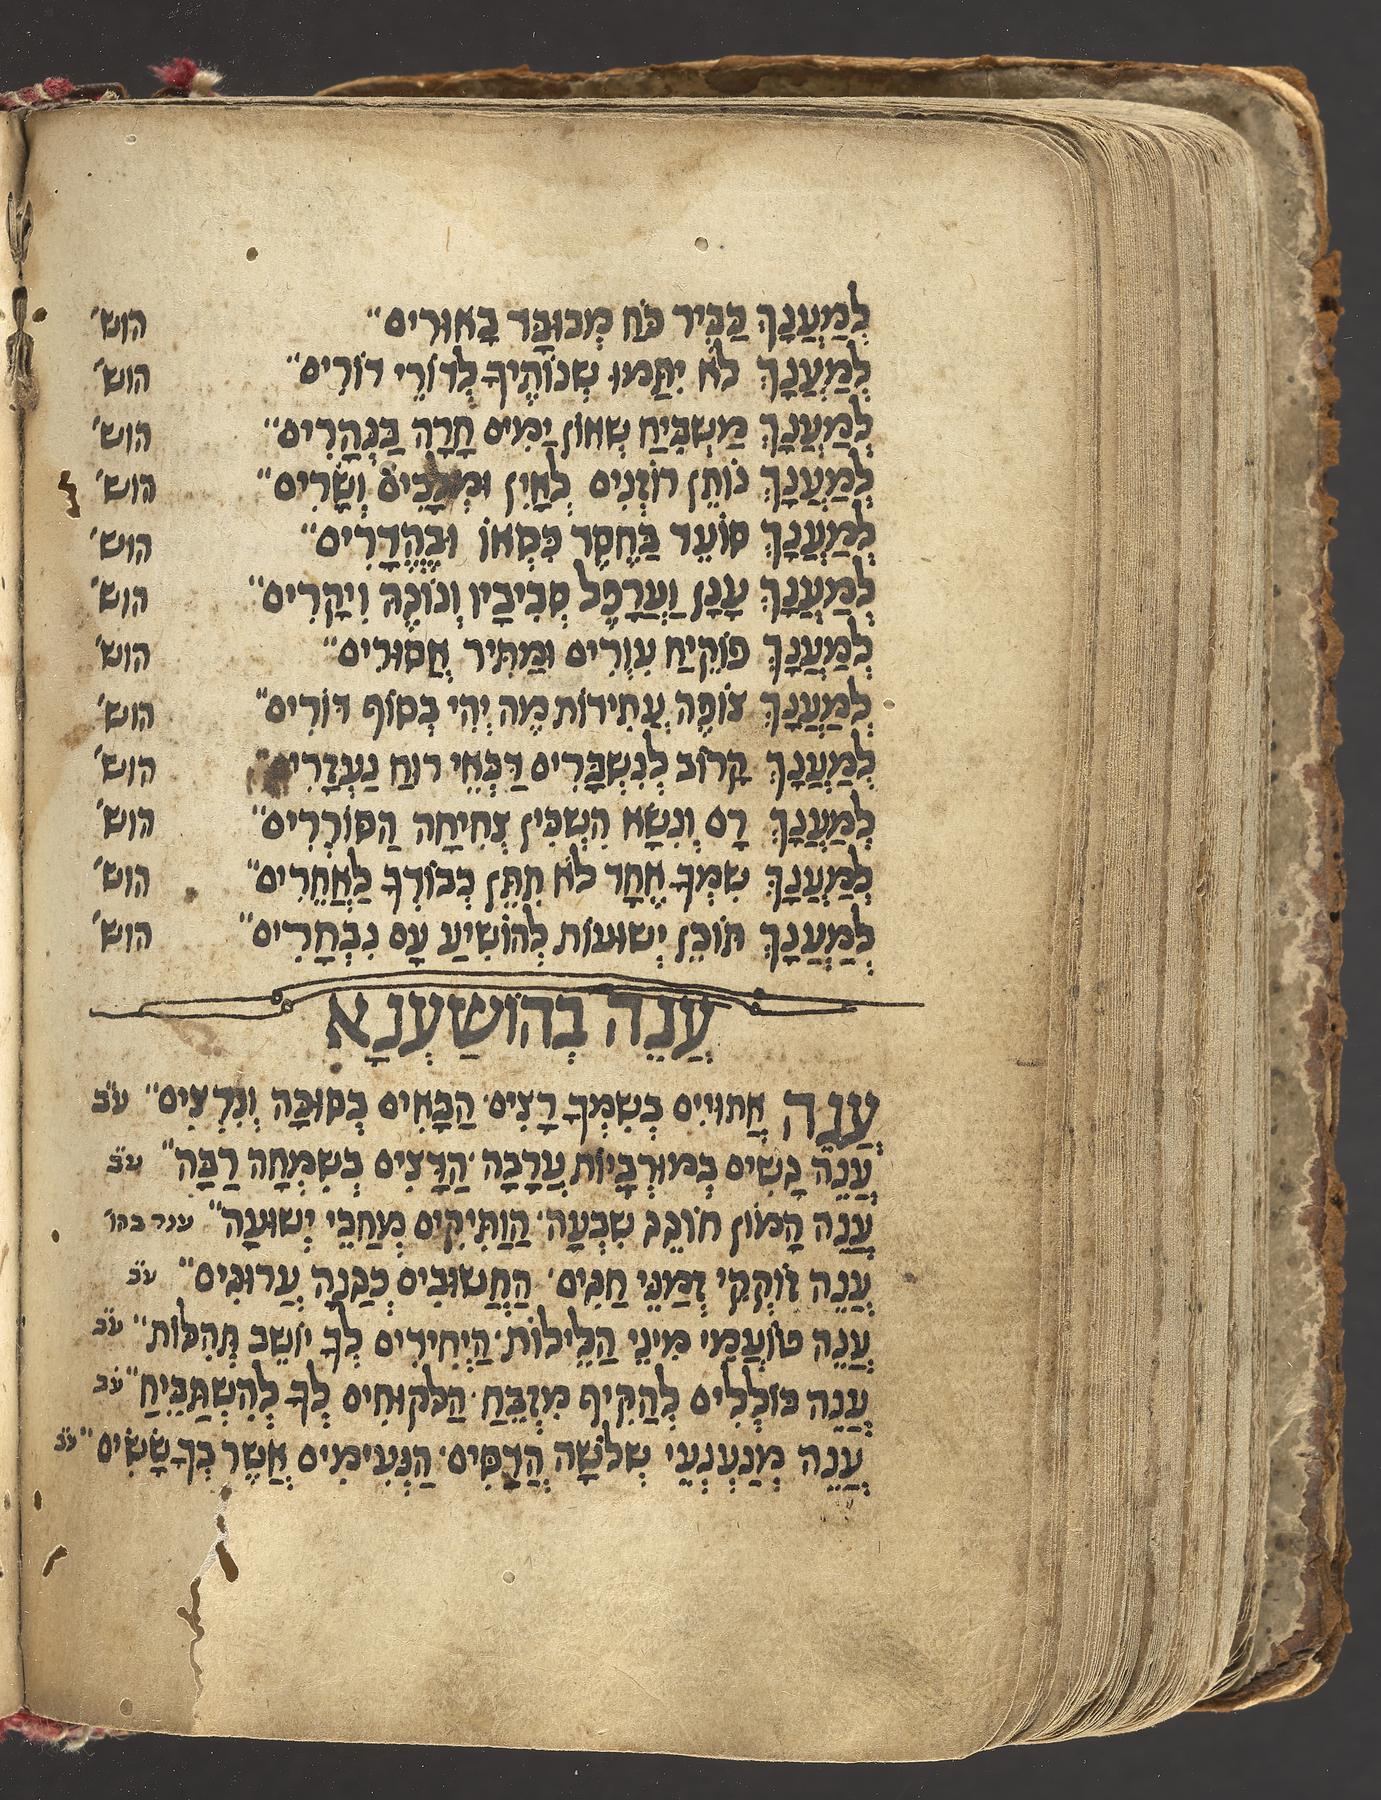 לְמַעֲנָךְ כַּבִּיר כֹּחַ מְכוּבָּד בָּאוּרִים הוש'
לְמַעֲנָךְ לֹא יִתַּמּוּ שְׁנוֹתֶיךָ לְדוֹרֵי דוֹרִים הוש'
לְמַעֲנָךְ מַשְׁבִּיחַ שְׁאוֹן יַמִּים חָרָה בַּנְּהָרִים הוש'
לְמַעֲנָךְ נוֹתֵן רוֹזְנִים לְאַיִן וּמְלָכִים וְשָׂרִים הוש'
לְמַעֲנָךְ סוֹעֵד בַּחֶסֶד כִּסְאוֹ וּבֶהֱדָרִים הוש'
לְמַעֲנָךְ עָנָן וַעֲרָפֶל סְבִיבָיו וְנוֹגַהּ וִיקָרִים הוש'
לְמַעֲנָךְ פּוֹקֵיחַ עִוְרִים וּמַתִּיר אֲסוּרִים הוש'
לְמַעֲנָךְ צוֹפֶה עֲתִידוֹת מֶה יְהִי בְּסוֹף דּוֹרִים הוש'
לְמַעֲנָךְ קָרוֹב לְנִשְׁבָּרִים דַּכְּאֵי רוּחַ הוש'
לְמַעֲנָךְ רָם וְנִשָּׂא הִשְׁכִּין צְחִיחָה הַסּוֹרְרִים הוש'
לְמַעֲנָךְ שִׁמְךָ אֶחָד לֹא תִתֵּן כְּבוֹדְךָ לַאֲחֵרִים הוש'
לְמַעֲנָךְ תּוֹכֵן יְשׁוּעוֹת לְהוֹשִׁיעַ עַם נִבְחָרִים הוש'
עֲנֵה בְּהוֹשַׁעְנָא
עֲנֵה אֲתוּיִים בְּשִׁמְךָ רָצִים הַבָּאִים בְּסוּכָּה וְנִרְצִים ע"ב
עֲנֵה גָשִׁים בְּמוּרְבִּיּוֹת עֲרָבָה הַדָּצִים בְּשִׂמְחָה רַבָּה ע"ב
עֲנֵה הָמוֹן חוֹגֵג שִׁבְעָה הַוַּתִּיקִים מְחַכֵּי יְשׁוּעָה ענה בהו'
עֲנֵה זוֹקְקֵי זְמַנֵּי חַגִּים הַחֲשׁוּבִים כְּגַנָּה עֲרוּגִים ע"ב
עֲנֵה טוֹעֲמֵי מִינֵי הַלֵּילוֹת הַיְּחִידִים לְךָ יוֹשֵׁב תְּהִלּוֹת ע"ב
עֲנֵה כּוֹלְלִים לְהַקִּיף מִזְבֵּחַ הַלְּקוּחִים לְךָ לְהִשְׁתַּבֵּיחַ ע"ב
עֲנֵה מְנַעְנְעֵי שְׁלֹשָׁה הֲדַסִּים הַנְּעִימִים אֲשֶׁר בְּךָ שָׂשִׂים ע"ב